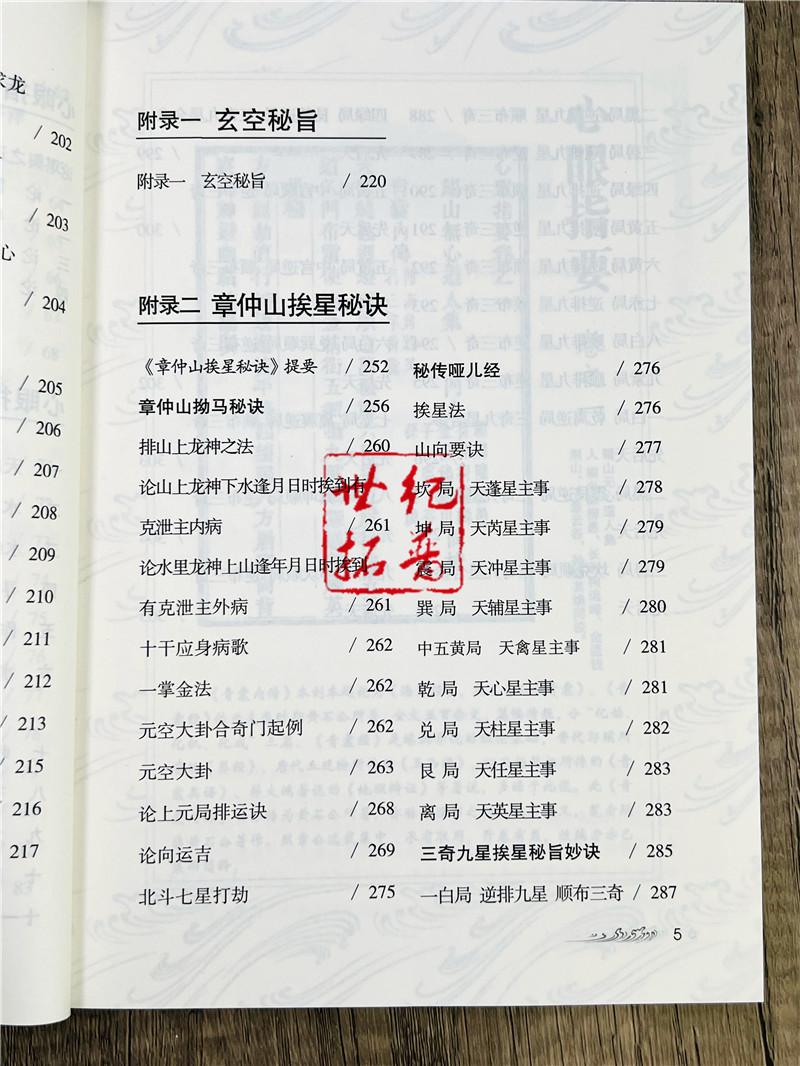 家龙
/ 202
/ 203
心
/ 204
/ 205
/ 206
/ 207
/ 208
/ 209
/ 210
/ 211
/ 212
/ 213
/ 215
/ 216
/ 217
附录一 玄空秘旨
附录一 玄空秘旨 / 220
附录二 章仲山挨星秘诀
《章仲山挨星秘诀》提要 / 252
章仲山拗马秘诀 / 256
排山上龙神之法 / 260
论山上龙神下水逢月日时挨到有
克泄主内病 / 261
论水里龙神上山逢年月日时挨到
有克泄主外病 / 261
十干应身病歌 / 262
一掌金法 / 262
元空大卦合奇门起例 / 262
元空大卦 / 263
论上元局排运诀 / 268
论向运吉 / 269
北斗七星打劫 / 275
秘传哑儿经 / 276
挨星法 / 276
山向要诀 / 277
坎 局 天蓬星主事 / 278
坤 局 天芮星主事 / 279
震 局 天冲星主事 / 279
巽 局 天辅星主事 / 280
中五黄局 天禽星主事 / 281
乾 局 天心星主事 / 281
兑 局 天柱星主事 / 282
艮 局 天任星主事 / 283
离 局 天英星主事 / 283
三奇九星挨星秘旨妙诀 / 285
一白局 逆排九星 顺布三奇 / 287
世纪
拓普
5